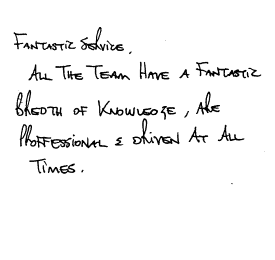 Fantastic Service.
All The Team Have a Fantastic
Bredth of Knowledge, Are
Proffessional & Driven At All
Times.